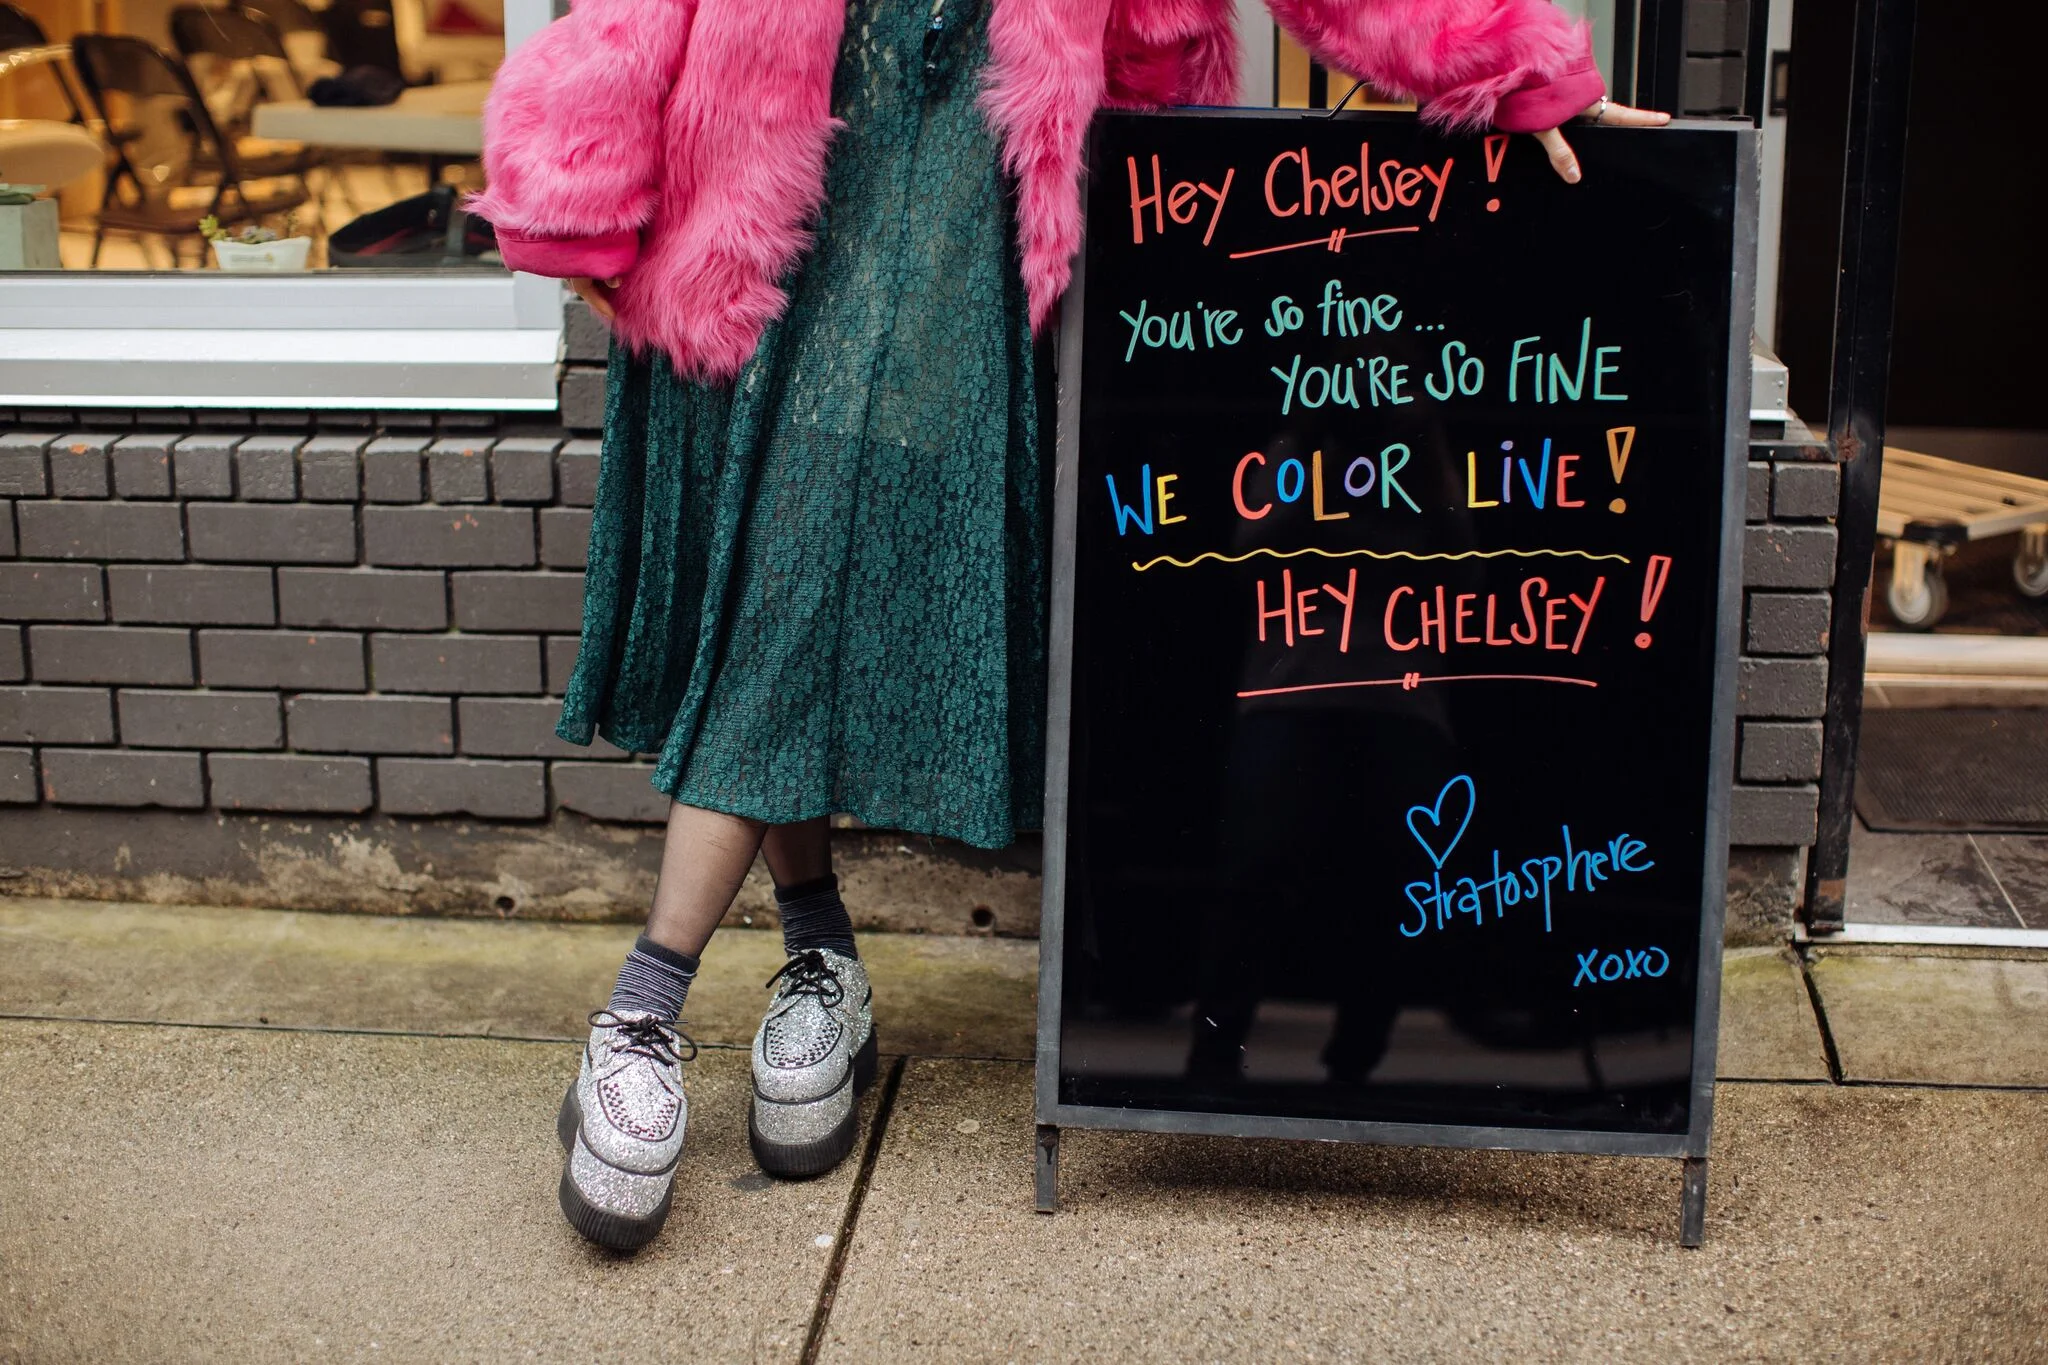 Hey Chelsey!
You're so fine...
YOU'RE SO FINE
WE COLOR LiVE!
HEY CHELSEY!
stratosphere
xoxo